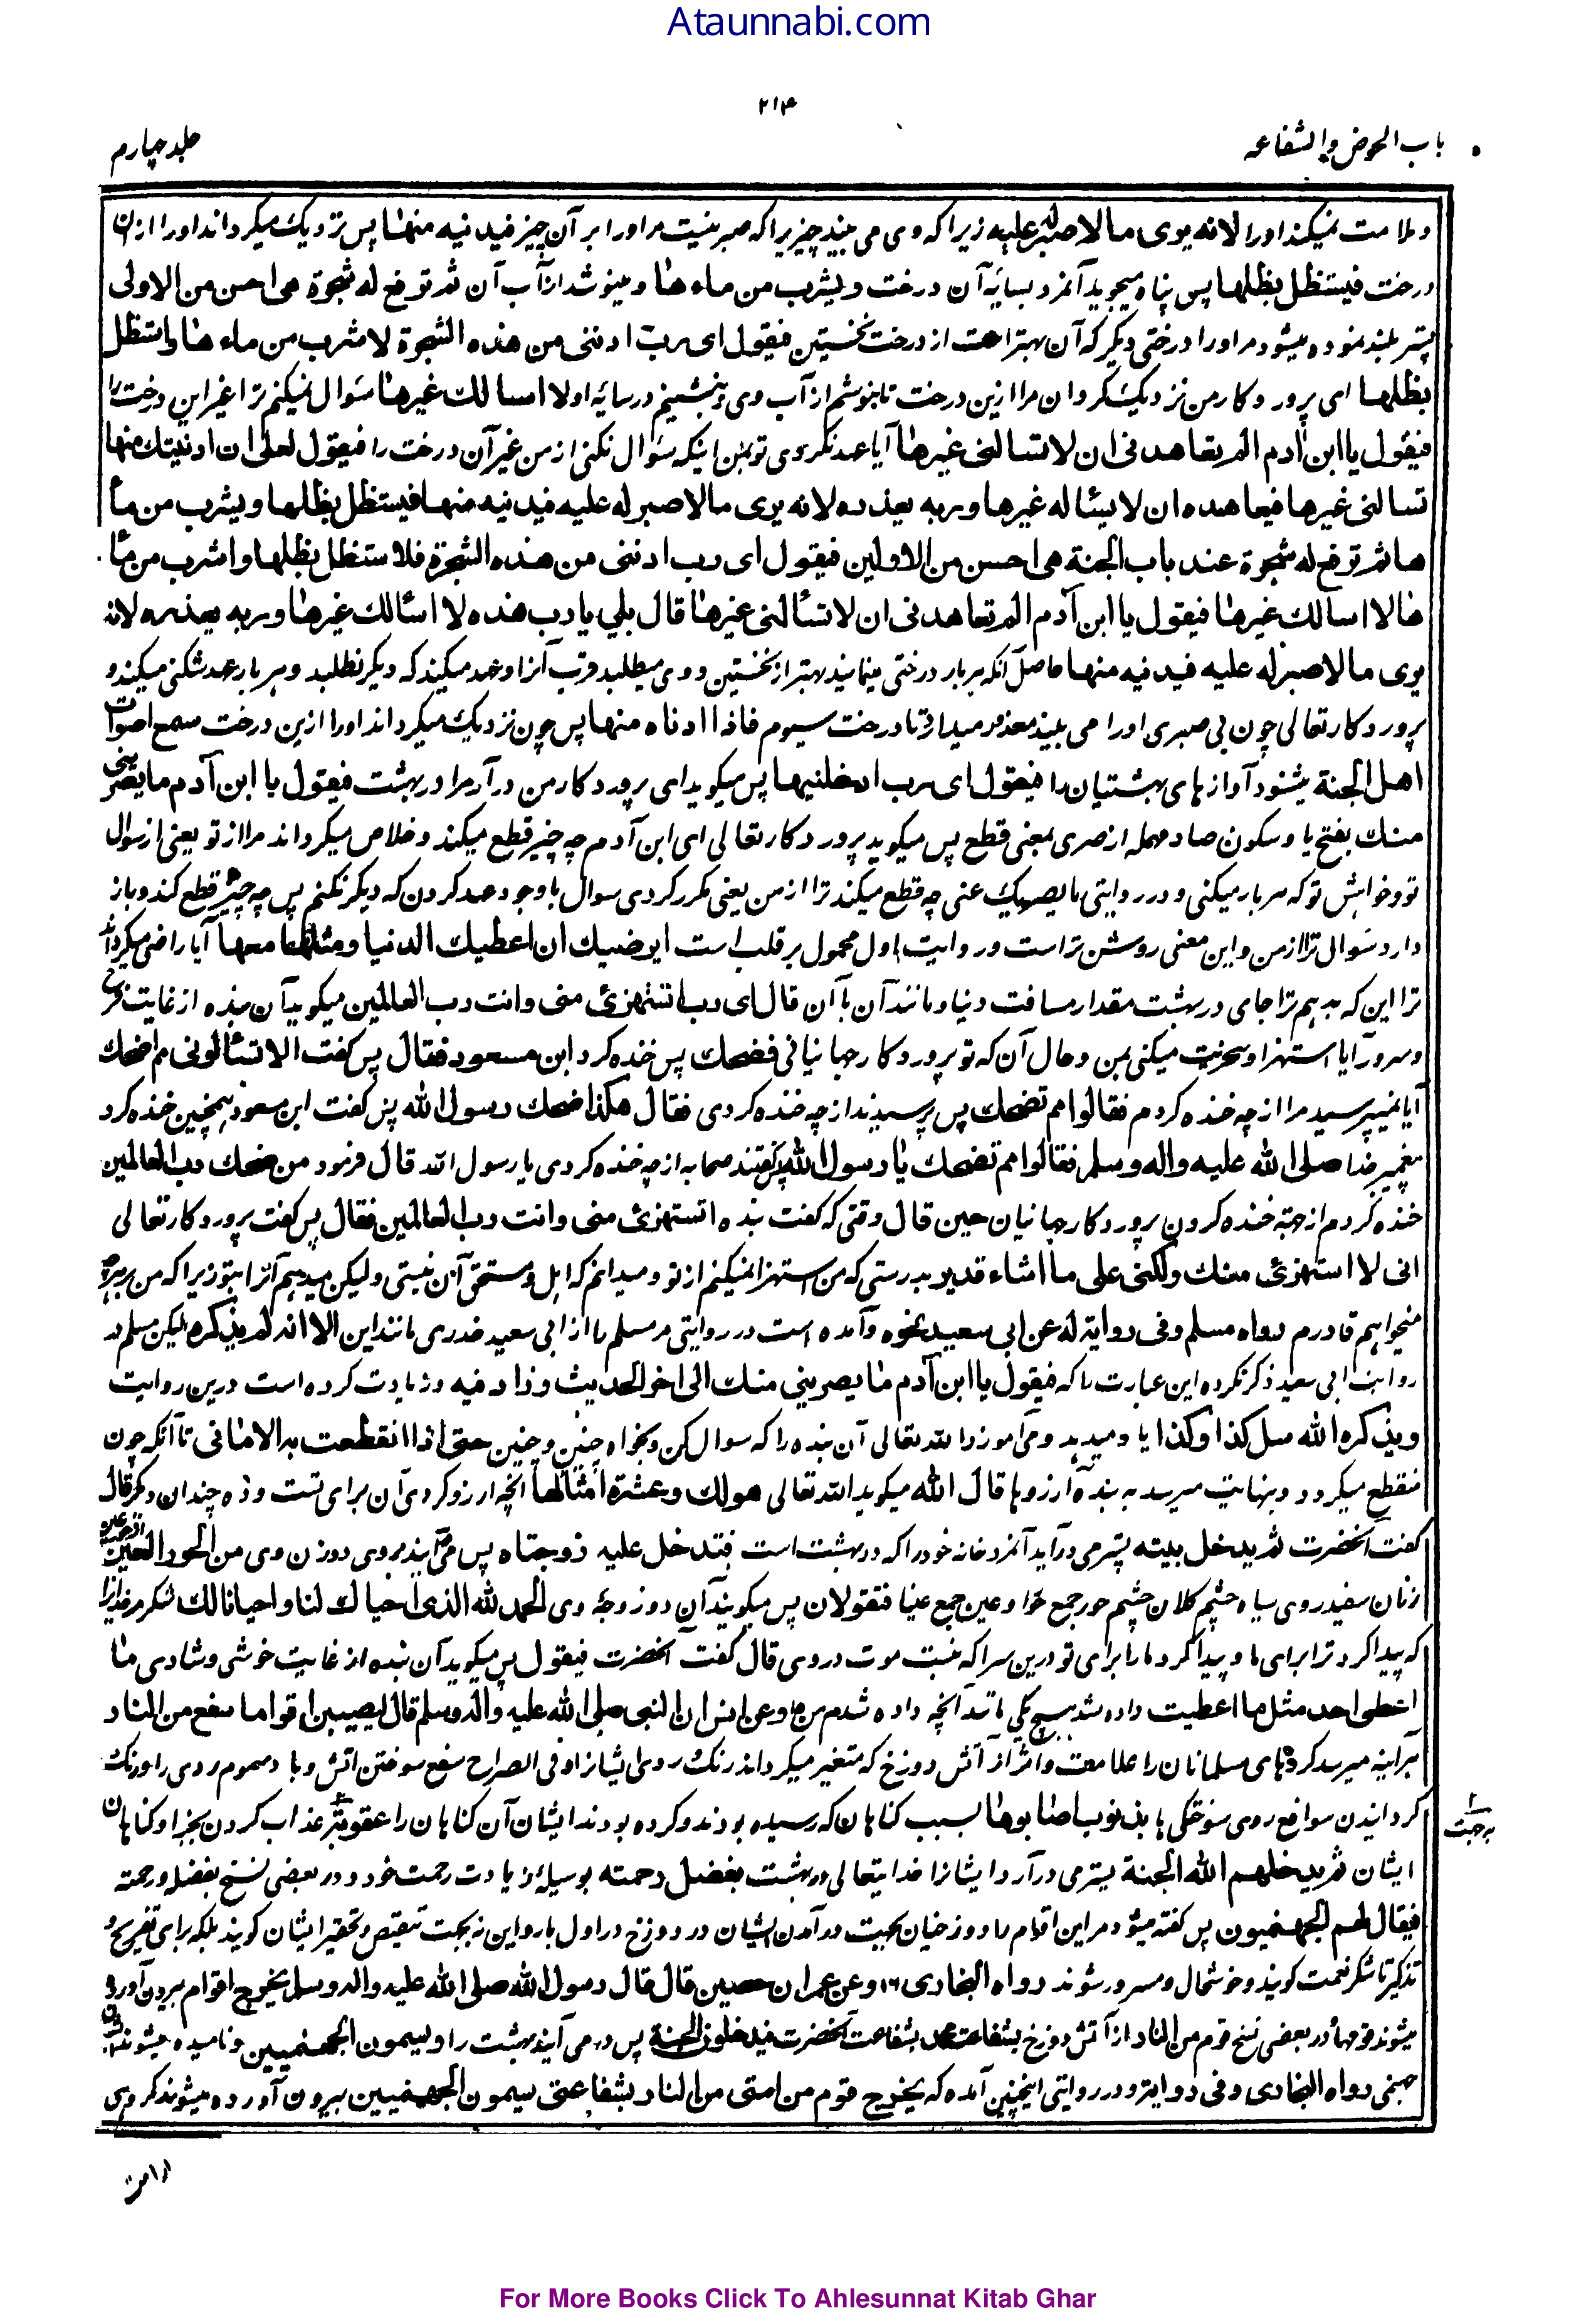 Ataunnabi.com
۲۱۴
باب الحوض والشفاعه
جلد چهارم
و ملامت نمیکند اورا لانه یری مالا صبر له علیه زیراکه وی می بیند چیزیرا که صبر نیست مر اورا بر آن چیز فیدنیه منها پس نزدیک میگرداند اورا ازان
درخت فیستظل بظلها پس پناه میجوید آنمرد بسایۀ آن درخت و یشرب من ماءها و مینوشد از آب آن ثم ترفع له شجرة هی احسن من الاولی
پستر بلند نموده میشود مر اورا درختی دیگر که آن بهتر است از درخت نخستین فیقول ای رب ادننی من هذه الشجرة لاشرب من ماءها واستظل
بظلها ای پروردگار من نزدیک گردان مرا ازین درخت تا بنوشم از آب وی و بنشینم در سایۀ او لا اسالك غیرها سوال نمیکنم ترا غیر این درخت را
فیقول یا ابن آدم الم تعاهدنی ان لا تسالنی غیرها آیا عهد نکردی تو بمن اینکه سوال نکنی از من غیر آن درخت را فیقول لعلی ان ادنیتك منها
تسالنی غیرها فیعاهده ان لا یسئاله غیرها و ربه یعذره لانه یری مالا صبر له علیه فیدنیه منها فیستظل بظلها و یشرب من مآ
ها ثم ترفع له شجرة عند باب الجنة هی احسن من الاولین فیقول ای رب ادننی من هذه الشجرة فلاستظل بظلها واشرب من مآ
ها لا اسالك غیرها فیقول یا ابن آدم الم تعاهدنی ان لا تسئالنی غیرها قال بلی یا رب هذه لا اسئالك غیرها و ربه یعذره لانه
یری مالا صبر له علیه فیدنیه منها حاصل آنکه هر بار درختی مینمایند بهتر از نخستین و وی میطلبد قرب آنرا و عهد میکند که دیگر نطلبد و هر بار عهد شکنی میکند و
پروردگار تعالی چون بی صبری اورا می بیند معذور میدارد تا درخت سیوم فاذا ادناه منها پس چون نزدیک میگرداند اورا ازین درخت سمع اصوات
اهل الجنة میشنود آوازهای بهشتیان را فیقول ای رب ادخلنیها پس میگوید ای پروردگار من درآر مرا در بهشت فیقول یا ابن آدم ما یصرینی
منك بفتح یا و سکون صاد مهمله از صری بمعنی قطع پس میگوید پروردگار تعالی ای ابن آدم چه چیز قطع میکند و خلاص میگرداند مرا از تو یعنی از سوال
تو و خواهش تو که هر بار میکنی و در روایتی ما یصریك عنی چه قطع میکند ترا از من یعنی مکرر کردی سوال با وجود عهد کردن که دیگر نکنم پس چه چیز قطع کند و باز
دارد سوال ترا از من و این معنی روشن تر است و روایت اول محمول بر قلب است ایرضیك ان اعطیك الدنیا و مثلها معها آیا راضی میگرداند
ترا این که بدهم ترا جای در بهشت مقدار مسافت دنیا و مانند آن با آن قال ای رب اتستهزئ منی وانت رب العالمین میگوید آن بنده از غایت فرح
و سرور آیا استهزا و سخریت میکنی بمن و حال آن که تو پروردگار جهانیانی فضحك پس خنده کرد ابن مسعود فقال پس گفت الا تسئالونی مم اضحك
آیا نمیپرسید مرا از چه خنده کردم فقالوا مم تضحك پس پرسیدند از چه خنده کردی فقال هكذا ضحك رسول الله پس گفت ابن مسعود همچنین خنده کرد
پیغمبر خدا صلی الله علیه واله وسلم فقالوا مم تضحك یا رسول الله پس گفتند صحابه از چه خنده کردی یا رسول الله قال فرمود من ضحك رب العالمین
خنده کردم از جهة خنده کردن پروردگار جهانیان حین قال وقتی که گفت بنده اتستهزئ منی وانت رب العالمین فقال پس گفت پروردگار تعالی
انی لا استهزئ منك ولكنی علی ما اشاء قدیر بدرستی که من استهزا نمیکنم از تو و میدانم که اهل و مستحق آن نیستی و لیکن میدهم آنرا بتو زیرا که من بر هرچه
میخواهم قادرم رواه مسلم وفی روایة له عن ابی سعید نحوه و آمده است در روایتی مر مسلم را از ابی سعید خدری مانند این الا انه لم یذكره لیکن مسلم در
روایت ابی سعید ذکر نکرده این عبارت را که فیقول یا ابن آدم ما یصرینی منك الی اخر الحدیث وزاد فیه و زیادت کرده است درین روایت
ویذكره الله سل كذا وكذا یاد میدهد و می آموزد الله تعالی آن بنده را که سوال کن و بخواه چنین و چنین حتی اذا انقطعت به الامانی تا آنکه چون
منقطع میگردد و بنهایت میرسد به بنده آرزوها قال الله میگوید الله تعالی هو لك وعشرة امثالها آنچه ارزو کردی آن برای تست و ده چندان دگر قال
گفت آنحضرت ثم یدخل بیته پستر می درآید آنمرد خانه خود را که در بهشت است فتدخل علیه زوجتاه پس می آیند بروی دو زن وی من الحور العین
زنان سفید روی سیاه چشم کلان چشم حور جمع حورا و عین جمع عینا فتقولان پس میگویند آن دو زوجۀ وی الحمد لله الذی احیاك لنا واحیانا لك شکر مر خدایرا
که پیدا کرد ترا برای ما و پیدا کرد ما را برای تو درین سرا که نیست موت در وی قال گفت آنحضرت فیقول پس میگوید آن بنده از غایت خوشی و شادی ما
اعطی احد مثل ما اعطیت داده نشد هیچ یکی مانند آنچه داده شدم من وعن انس ان النبی صلی الله علیه واله وسلم قال لیصیبن اقواما سفع من النار
هرآینه میرسد گروهای مسلمانان را علامت و اثر از آتش دوزخ که متغیر میگرداند رنگ روی ایشانرا و فی الصراح سفع سوختن آتش و باد سموم روی را و رنگ
گردانیدن سوافع روی سوختگی ها بذنوب اصابوها بسبب گناهان که رسیده بودند و کرده بودند ایشان آن گناهان را عقوبة عذاب کردن بجزاء گناهان
ایشان ثم یدخلهم الله الجنة پستر می درآرد ایشانرا خدایتعالی در بهشت بفضل رحمته بوسیله زیادت رحمت خود و در بعضی نسخ بفضله و رحمته
فیقال لهم الجهنمیون پس گفته میشود مر این اقوام را دوزخیان بجهت درآمدن ایشان در دوزخ در اول بار و این نه بجهت تنقیص و تحقیر ایشان گویند بلکه برای تفریح و
تذکیر تا شکر نعمت گویند و خوشحال و مسرور شوند رواه البخاری ۱۶ وعن عمران حصین قال قال رسول الله صلی الله علیه واله وسلم یخرج اقوام بیرون آورده
میشوند قومها و در بعضی نسخ قوم من النار از آتش دوزخ بشفاعة محمد بشفاعت آنحضرت فیدخلون الجنة پس در می آیند بهشت را ویسمون الجهنمیین و نامیده میشوند
جهنمی رواه البخاری وفی روایة و در روایتی اینچنین آمده که یخرج قوم من امتی من النار بشفاعتی یسمون الجهنمیین بیرون آورده میشوند گروهی
For More Books Click To Ahlesunnat Kitab Ghar